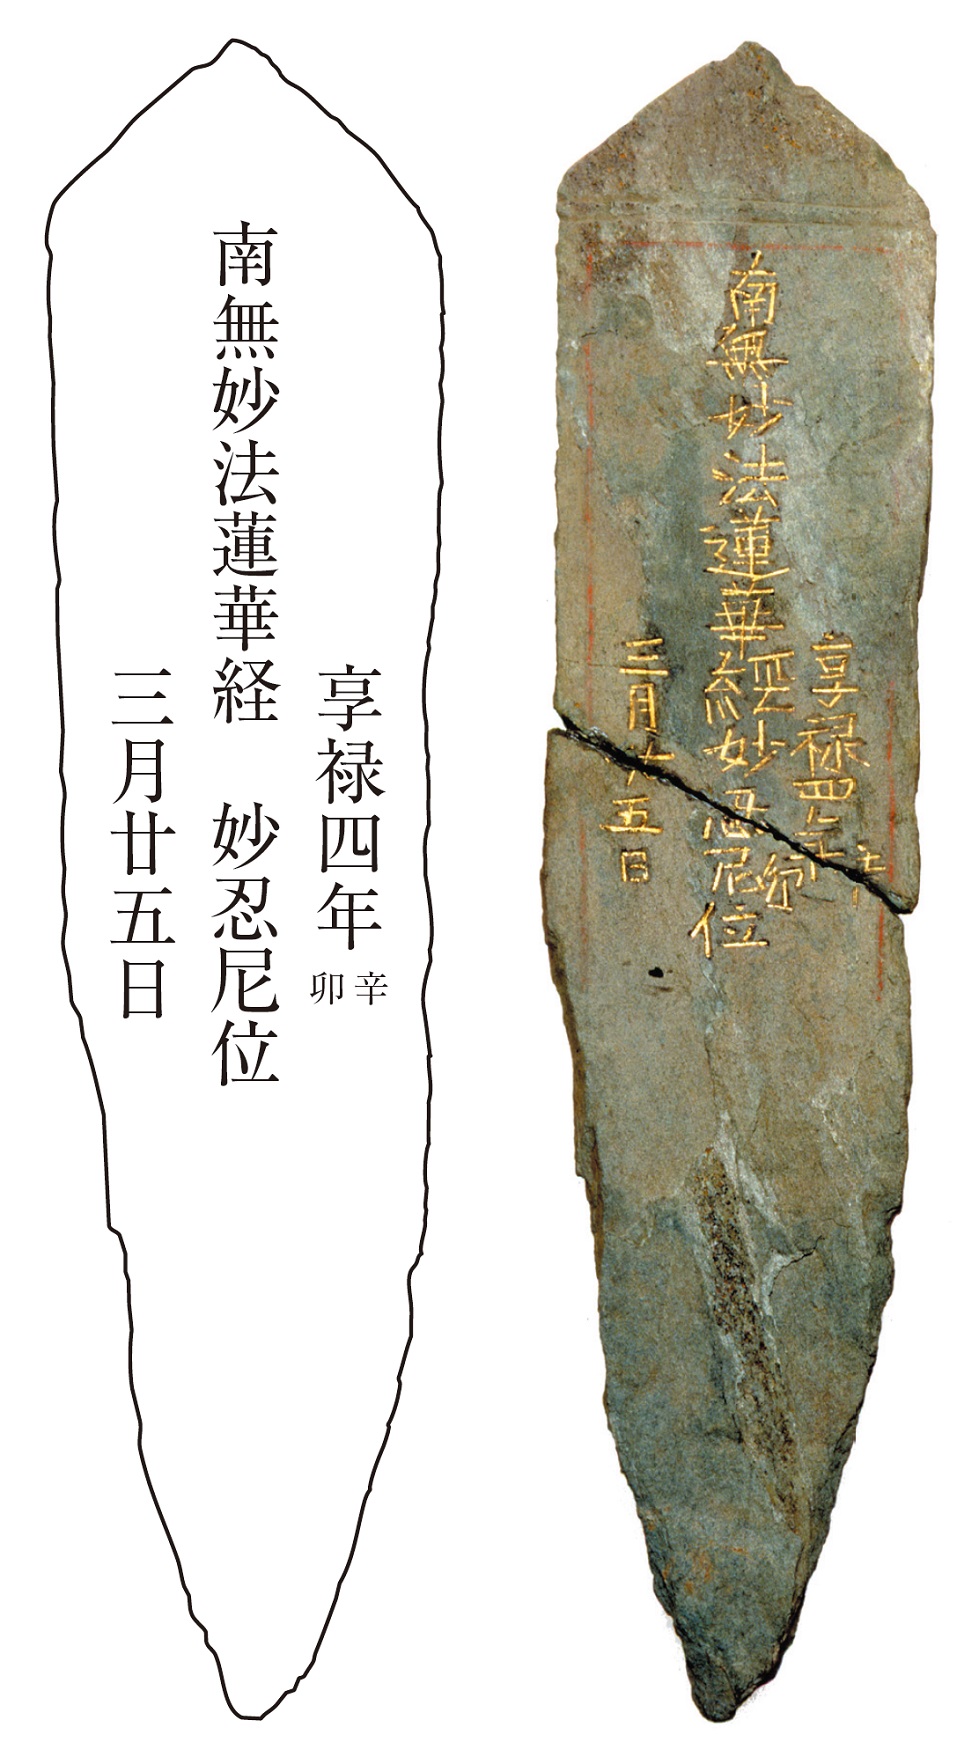 享禄四年 辛卯
南無妙法蓮華経 妙忍尼位
三月廿五日
享禄四年
南無妙法蓮華經妙忍尼位
三月廿五日